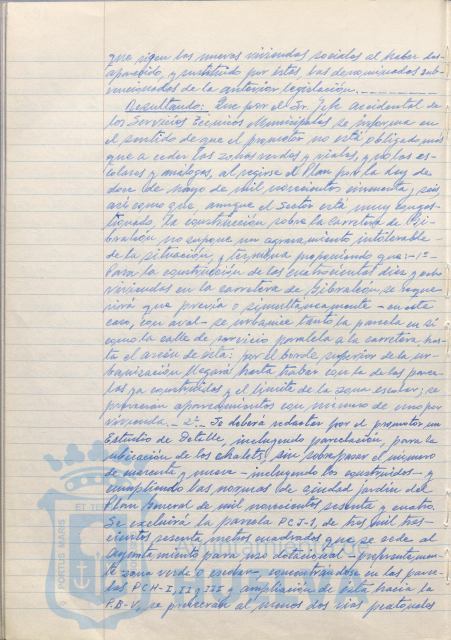 que rigen las nuevas viviendas sociales al haber des-
aparecido, y sustituido por éstas, las denominadas sub-
vencionadas de la anterior legislación.
Resultando: Que por el Sr. Jefe accidental de
los Servicios Técnicos Municipales se informa en
el sentido de que el promotor no está obligado más
que a ceder las zonas verdes y viales, y no las es-
colares y análogas, al regirse el Plan por la Ley de
doce de Mayo de mil novecientos cincuenta y seis
así como que, aunque el Sector está muy conges-
tionado, la construcción sobre la carretera de Gi-
braleón no supone un agravamiento intolerable
de la situación, y termina proponiendo que: 1º
Para la construcción de las cuatrocientas diez y ocho
viviendas en la carretera de Gibraleón se reque-
rirá que previa o simultáneamente - en este
caso, con aval - se urbanice tanto la parcela en sí
como la calle de servicio paralela a la carretera, has-
ta el arcén de ésta: por el borde superior de la ur-
banización llegará hasta trabar con la de las parce-
las ya construidas y el límite de la zona escolar; se
preverán aparcamientos con mínimo de uno por
vivienda. - 2º. Se deberá redactar por el promotor un
Estudio de Detalle, incluyendo parcelación, para la
ubicación de los chalets, sin sobrepasar el número
de cuarenta y nueve - incluyendo los construidos - y
cumpliendo las normas de ciudad jardín del
Plan General de mil novecientos sesenta y cuatro.
Se excluirá la parcela PCJ-1, de tres mil tres-
cientos sesenta metros cuadrados que se cede al
Ayuntamiento para uso dotacional - preferentemen-
te zona verde o escolar - concentrándose en las parce-
las PCH-I, II y III y ampliación de ésta hacia la
P.B-V, se preverán al menos dos vías peatonales
ET TERR
PORTUS MARIS